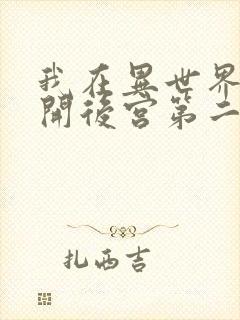 我在異世界
開後宮第二
扎西吉